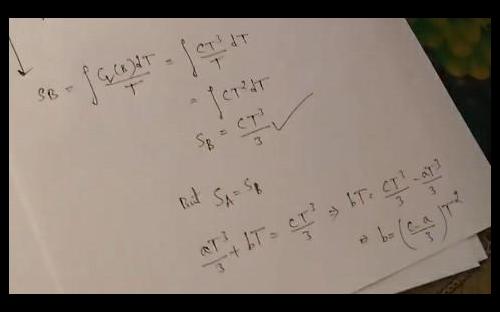 S_B = ∫ C_v(B) dT / T = ∫ CT³/T dT
= ∫ CT² dT
S_B = CT³/3 ✓
But S_A = S_B
aT³/3 + bT = CT³/3 ⇒ bT = CT³/3 - aT³/3
⇒ b = (C-a/3) T²